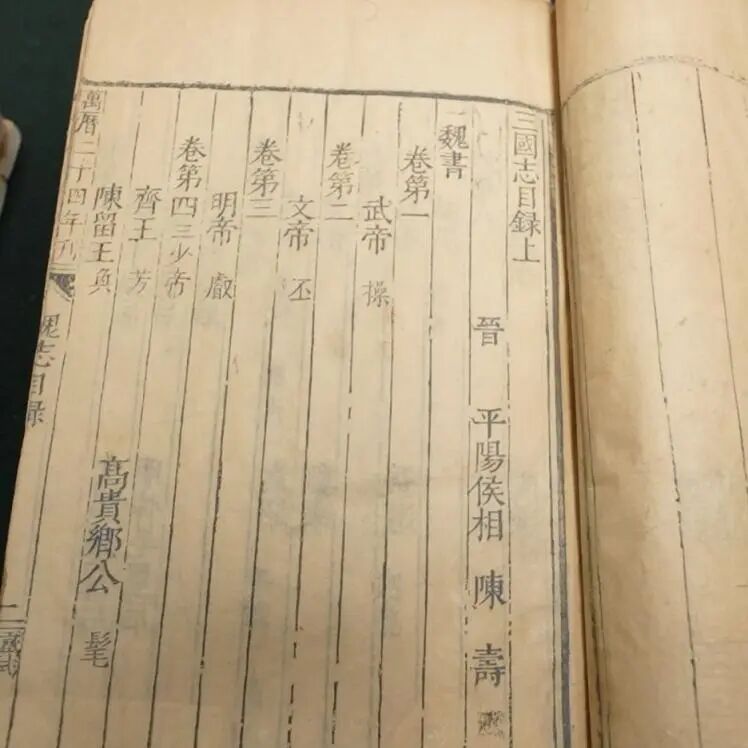 三國志目録上
晉 平陽侯相 陳 壽
魏書
卷第一
武帝 操
卷第二
文帝 丕
卷第三
明帝 叡
卷第四三少帝
齊王 芳
高貴鄉公 髦
陳留王奐
萬曆二十四年刊
魏志目録
二